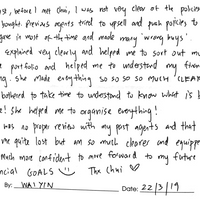 , before I met Chui, I was not very clear of the policies
bought. Previous agents tried to upsell and push policies to
me most of the time and made many 'wrong buys'.
explained very clearly and helped me to sort out my
portfolio and helped me to understand my
She made everything so so so so much 'CLEAR
bothered to take time to understand to know what is b
! She helped me to organise everything!
was no proper review with my past agents and that
me quite lost but am so much clearer and equipped
Much more confident to move forward to my future
GOALS Thx Chui
By: WAI YIN Date: 22/3/19